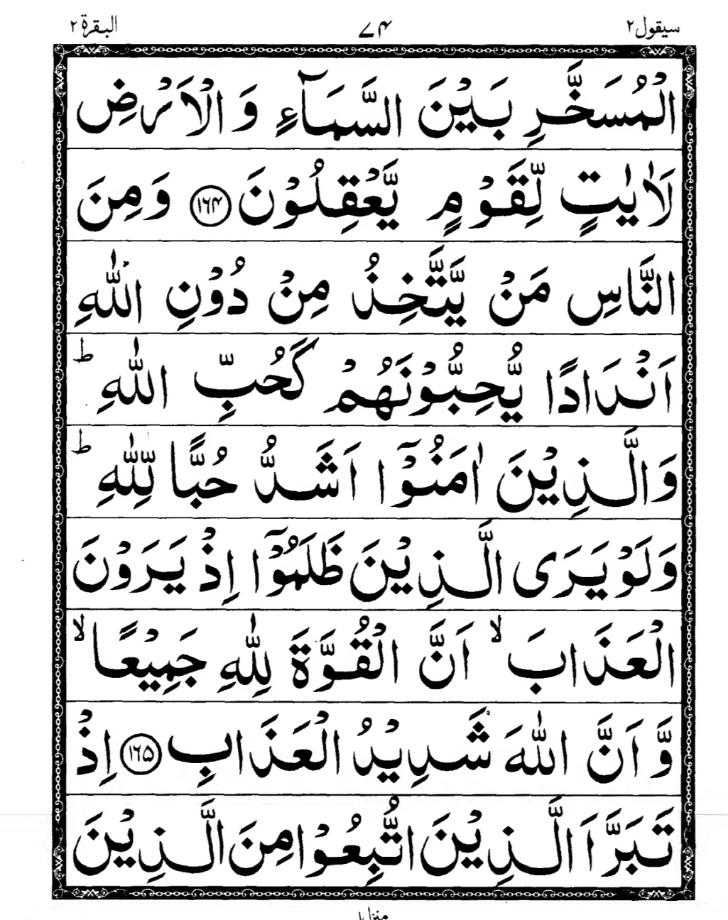 سیقول۲ ۷۴ البقرة ۲
الْمُسَخَّرِ بَيْنَ السَّمَآءِ وَ الْاَرْضِ
لَاٰيٰتٍ لِّقَوْمٍ يَّعْقِلُوْنَ ۱۶۴ وَمِنَ
النَّاسِ مَنْ يَّتَّخِذُ مِنْ دُوْنِ اللّٰهِ
اَنْدَادًا يُّحِبُّوْنَهُمْ كَحُبِّ اللّٰهِ ؕ
وَالَّذِيْنَ اٰمَنُوْۤا اَشَدُّ حُبًّا لِّلّٰهِ ؕ
وَلَوْ يَرَى الَّذِيْنَ ظَلَمُوْۤا اِذْ يَرَوْنَ
الْعَذَابَ ۙ اَنَّ الْقُوَّةَ لِلّٰهِ جَمِيْعًا ۙ
وَّ اَنَّ اللّٰهَ شَدِيْدُ الْعَذَابِ ۱۶۵ اِذْ
تَبَرَّاَ الَّذِيْنَ اتُّبِعُوْا مِنَ الَّذِيْنَ
منزل۱